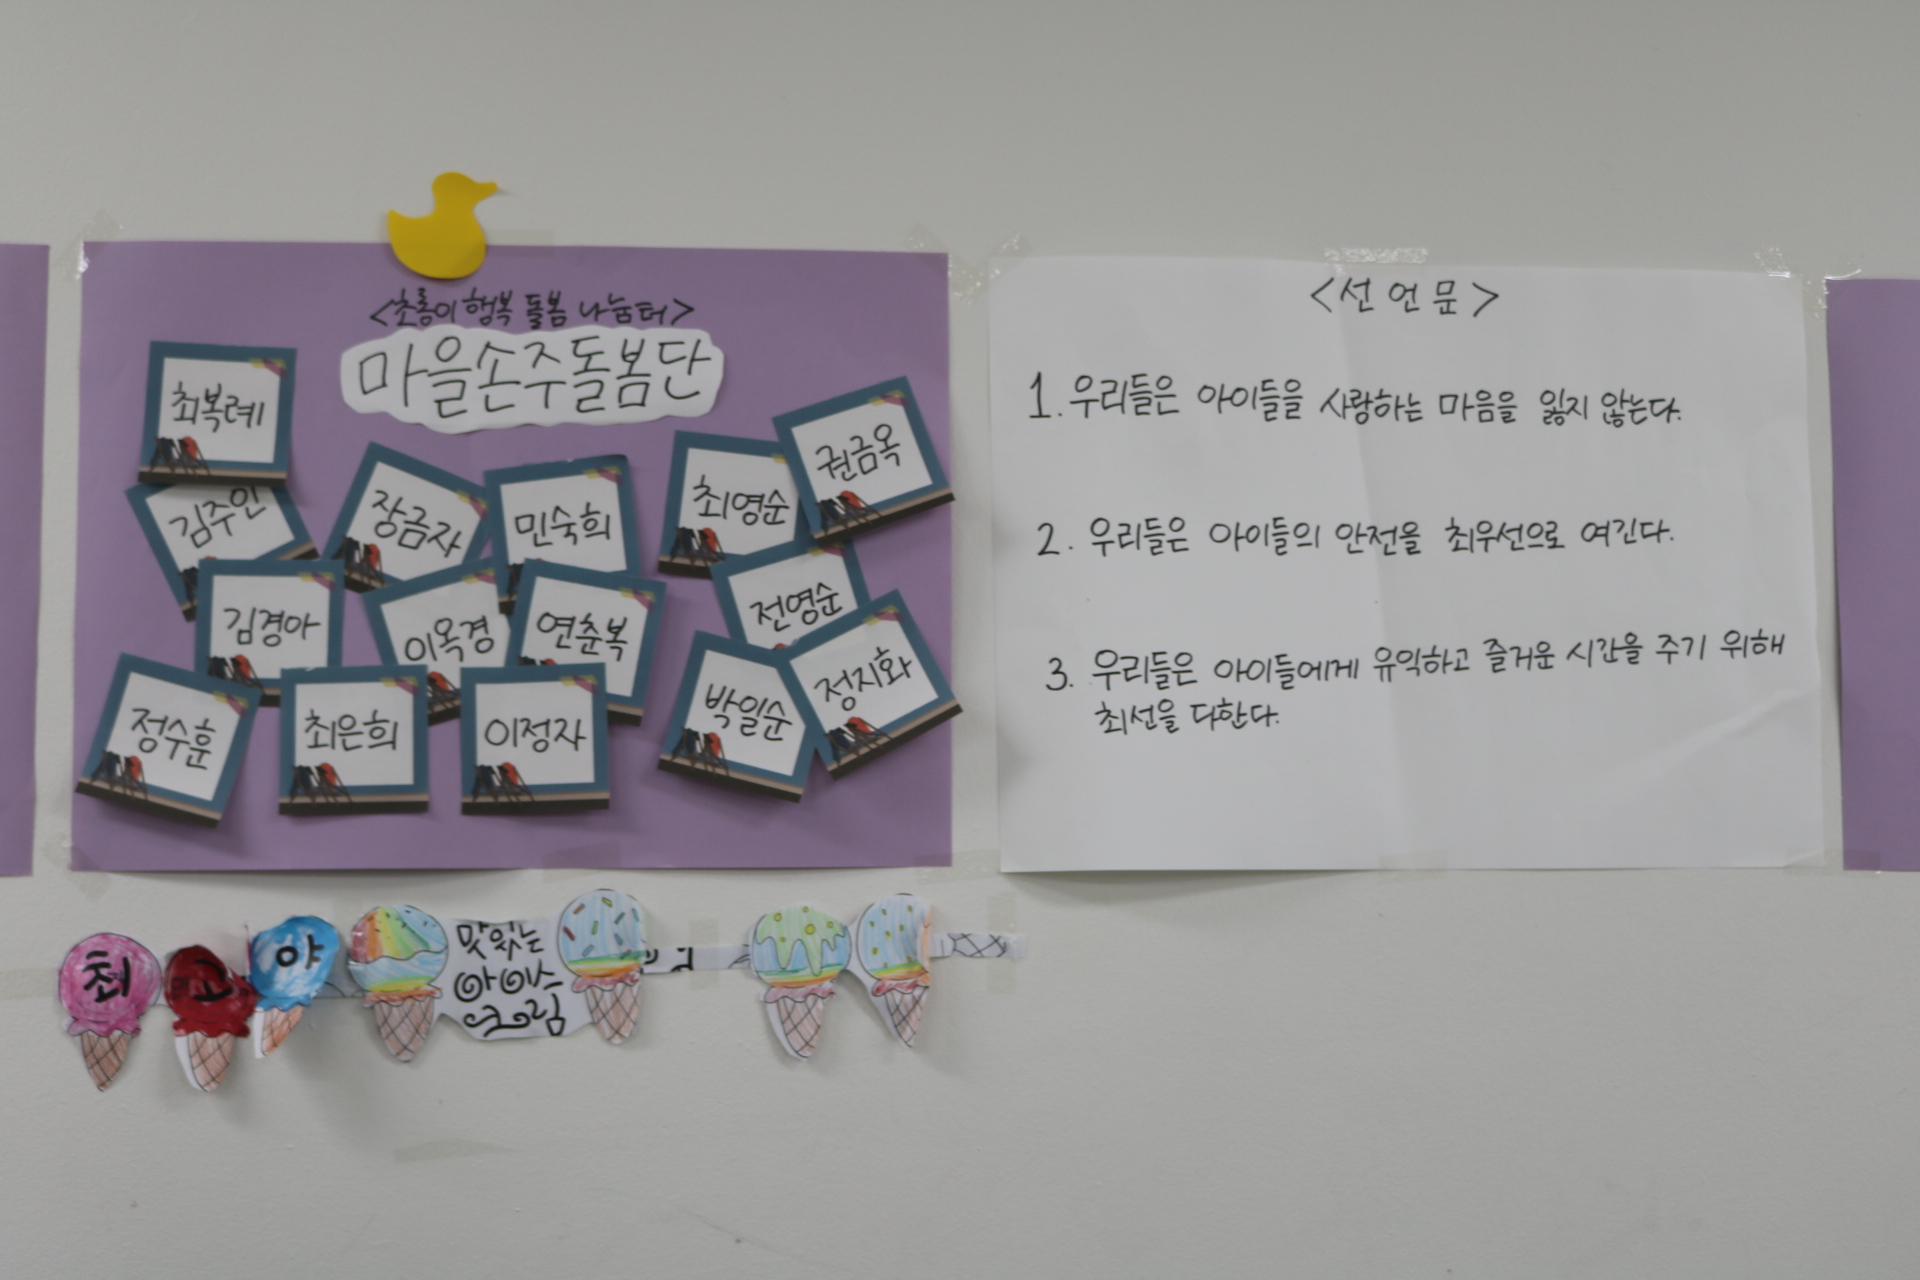 <초롱이 행복 돌봄 나눔터>
마을손주돌봄단
최복례
김주인
장금자
민숙희
최영순
권금옥
김경아
이옥경
연춘복
전영순
정수훈
최은희
이정자
박일순
정지화
<선언문>
1. 우리들은 아이들을 사랑하는 마음을 잃지 않는다.
2. 우리들은 아이들의 안전을 최우선으로 여긴다.
3. 우리들은 아이들에게 유익하고 즐거운 시간을 주기 위해
최선을 다한다.
최고야
맛있는
아이스
크림